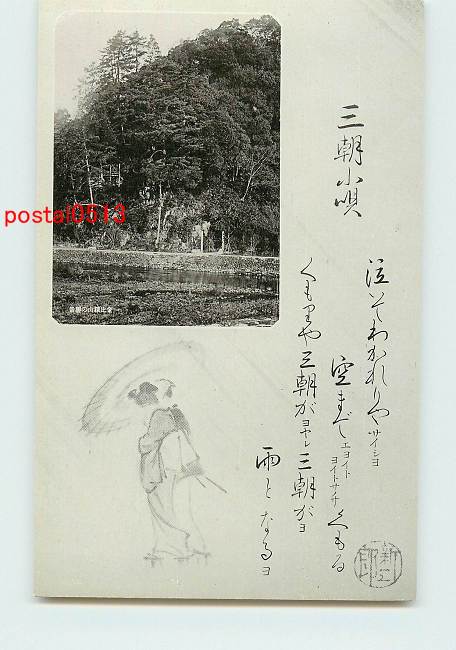 三朝小唄
泣いてわかれりやサイシヨ
空までエヨイトヨイトサノサくもる
くもりや三朝がヨヤレ三朝がヨ
雨となるヨ
postal0513